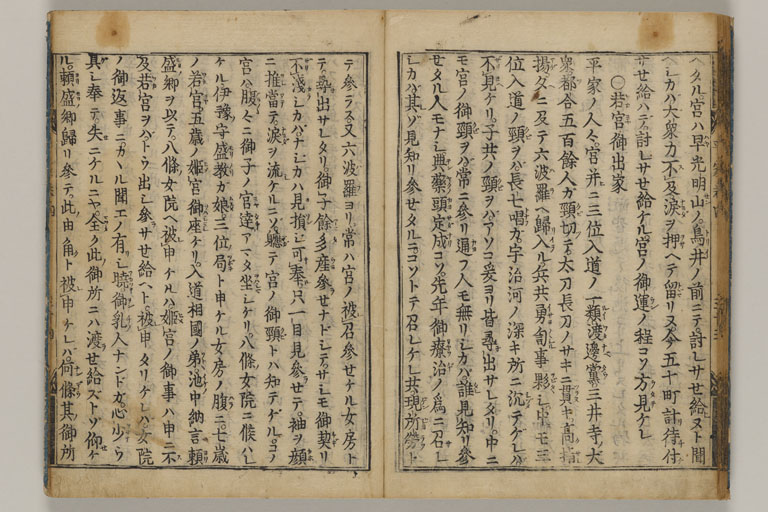 ヘタル宮ハ早光明山ノ鳥井ノ前ニテ討レサセ給ヌト聞
ヘシカハ大衆力不及涙ヲ押ヘテ留リヌ今五十町計待付
サセ給ハテ討レサセ給ケル宮ノ御運ノ程コソ方見ケレ
〇若宮御出家
平家ノ人々宮并ニ三位入道ノ一類渡邊黨三井寺ノ大
衆都合五百餘人カ頸切テ太刀長刀ノサキニ貫キ高指
揚夕ニ及テ六波羅ヘ歸入ル兵共勇訇事夥シ中モ三
位入道ノ頸ヲハ長七唱カ宇治河ノ深キ所ニ沉テゲレハ
不見ケリ子共ノ頸ヲハアソコ爰ヨリ皆尋出サレタリ中ニ
モ宮ノ御頸ヲハ常ニ參リ通フ人モ無リシカハ誰見知リ參
セタル人モナシ典藥頭定成コソ先年御療治ノ爲ニ召レ
シカハ其ゾ見知リ參セタルニコソトテ召レケレ共現所勞ト
テ參ラス又六波羅ヨリ常ハ宮ノ被召參セケル女房ト
テ尋出サレタリ御子餘多産參セナドシテサシモ御契リ
不淺シカバナシカハ見損シ可奉只一目見參セテ袖ヲ顔
ニ推當テ涙ヲ流ケルニソ軈テ宮ノ御頸トハ知テゲルコノ
宮ハ腹々ニ御子ノ宮達アマタ坐シケリ八條女院ニ候ハレ
ケル伊豫守盛教カ娘三位局ト申ケル女房ノ腹ニ七歳
ノ若宮五歳ノ姫宮御座ケリ入道相國ノ弟池中納言頼
盛卿ヲ以テ八條女院ヘ被申ケルハ姫宮ノ御事ハ申ニ不
及若宮ヲハトウ出シ參サセ給ヘト被申タリケレハ女院
ノ御返事ニカヽル聞エノ有シ曉御乳人ナンドカ心少ウ
具シ奉テ失ニケルニヤ全ク此御所ニハ渡セ給ズトゾ仰ケ
ル頼盛卿歸リ參テ此由角ト被申ケレハ何條其御所